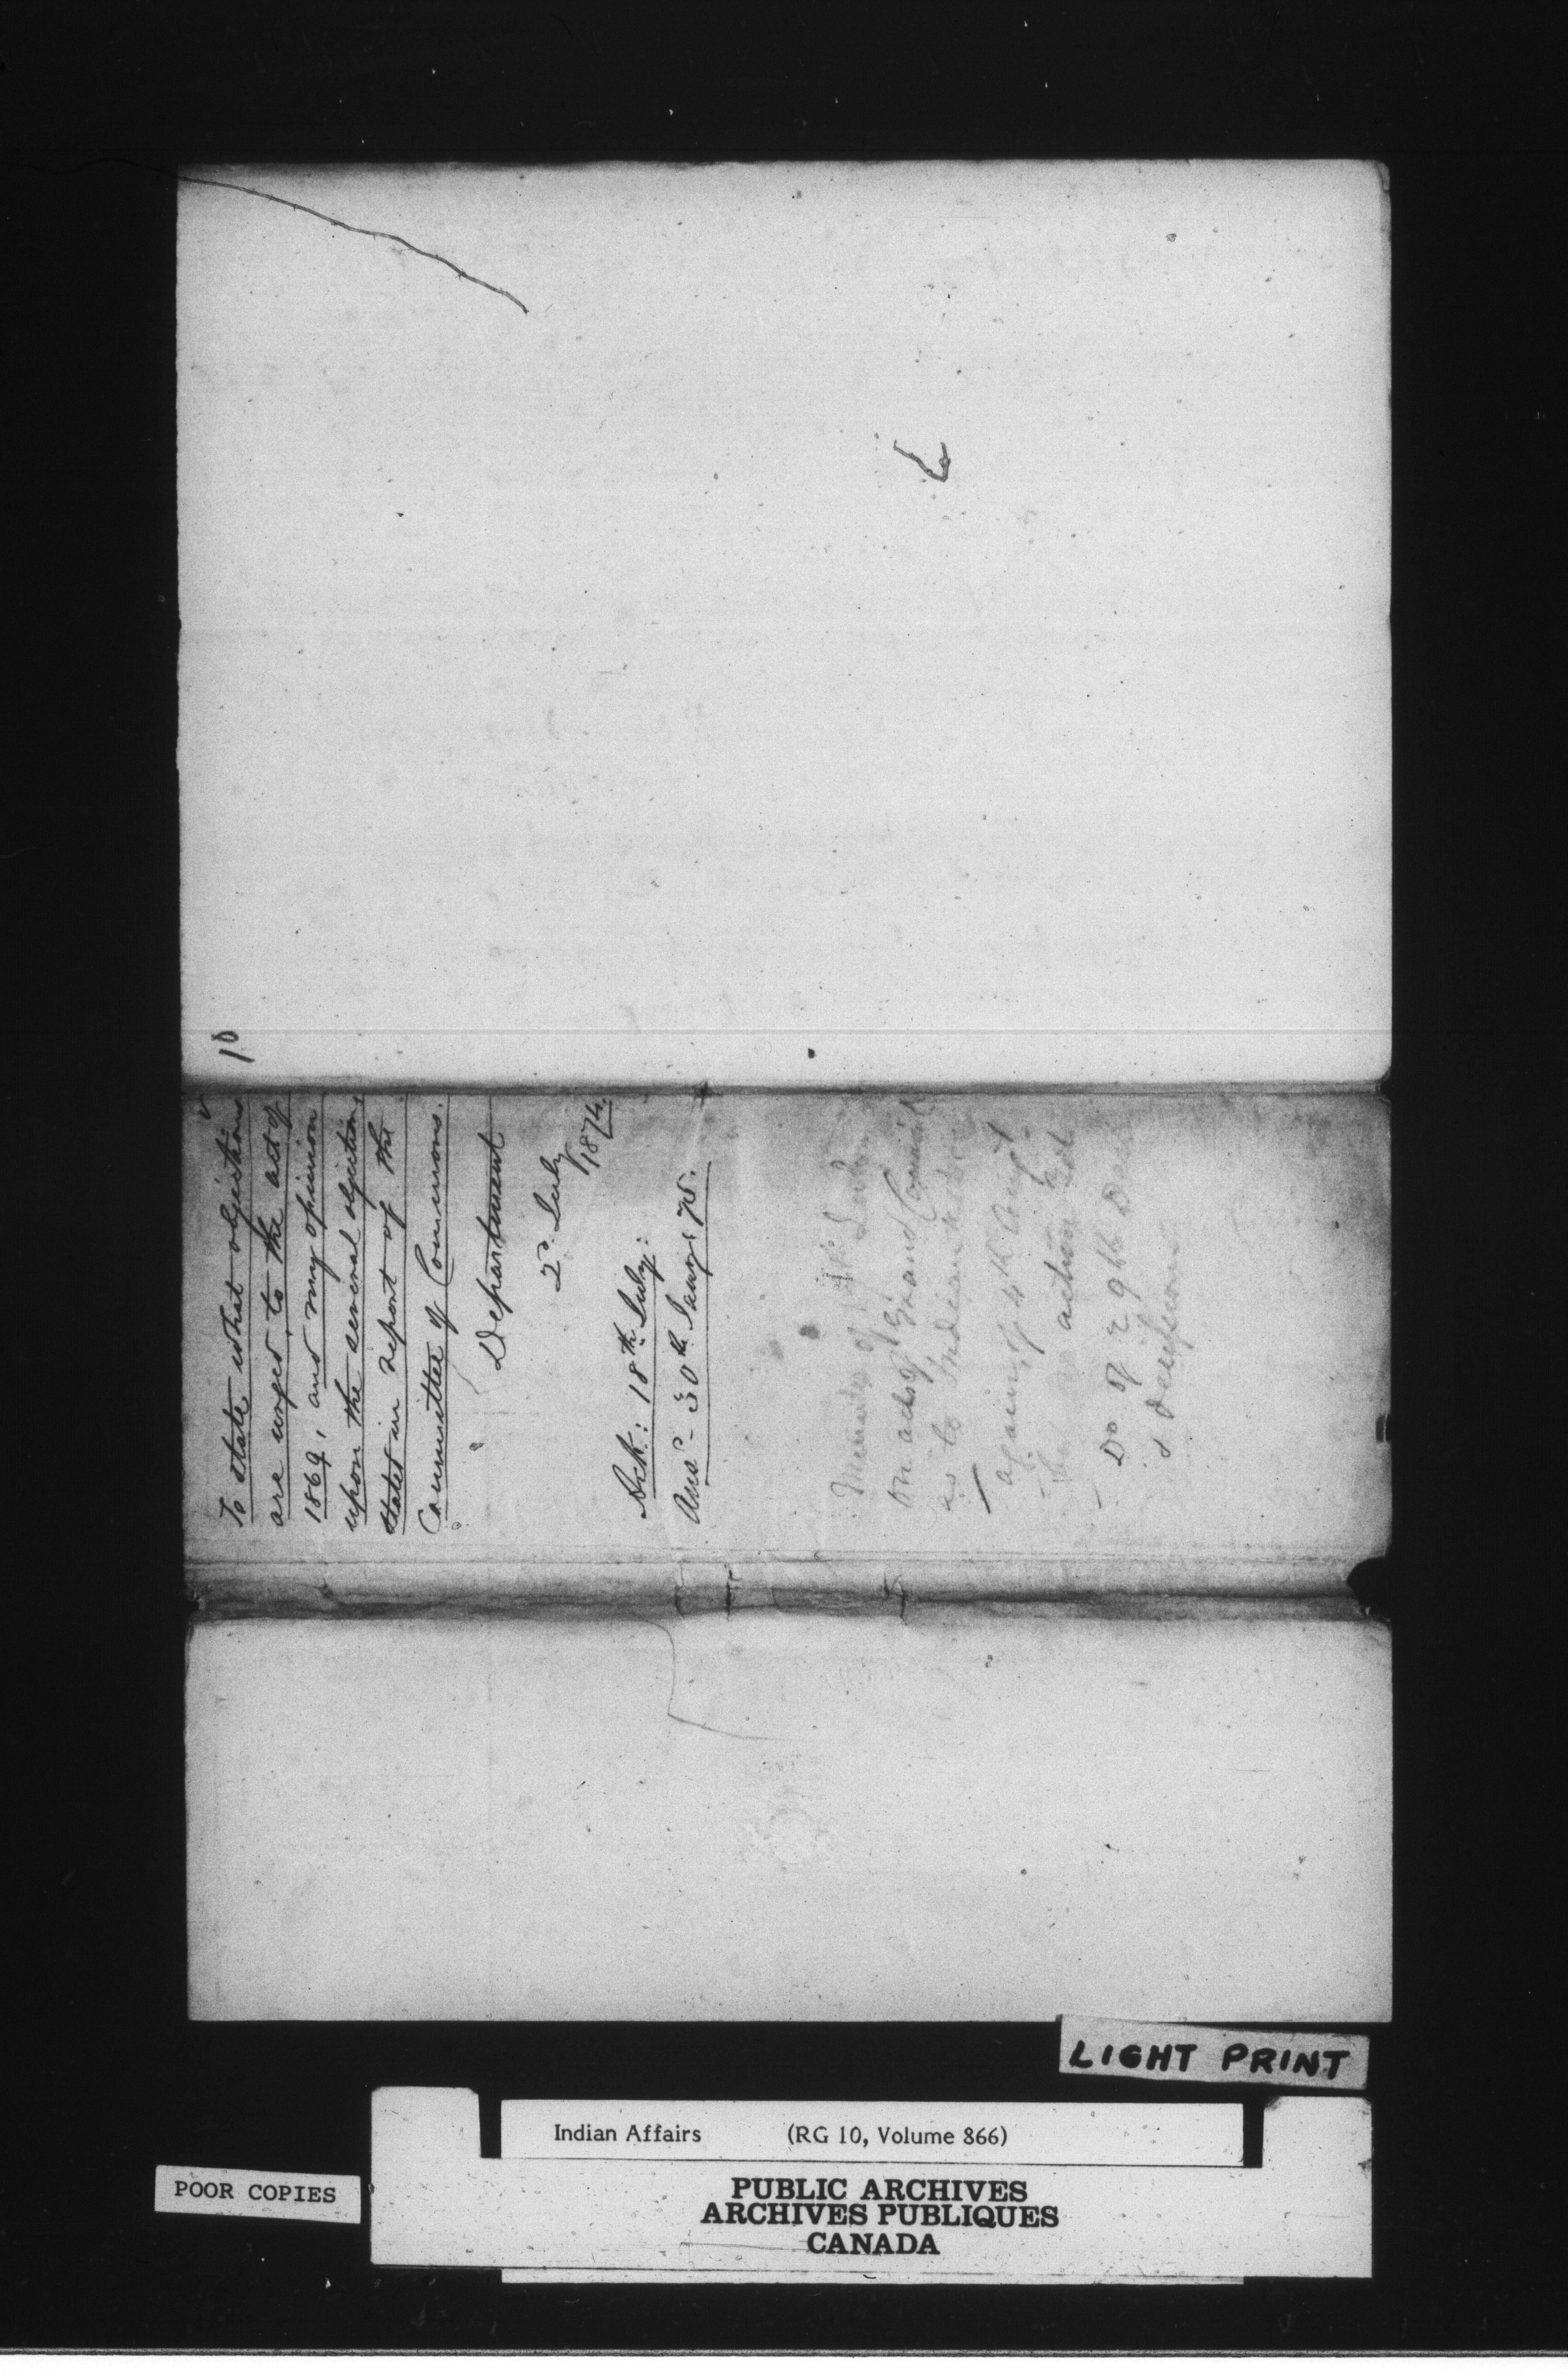 10
To state what objections
are urged to the act of
1869, and my opinion
upon the several objections
stated in report of the
Committee of Commons.
Department
2d. July
1874.
Ack: 18th July:
Ansd - 30th Jany 75.
Minutes of
on acts of Grand
as to Indian
again, of 4th Augt
action
Do of 29th
&
LIGHT PRINT
Indian Affairs (RG 10, Volume 866)
POOR COPIES
PUBLIC ARCHIVES
ARCHIVES PUBLIQUES
CANADA